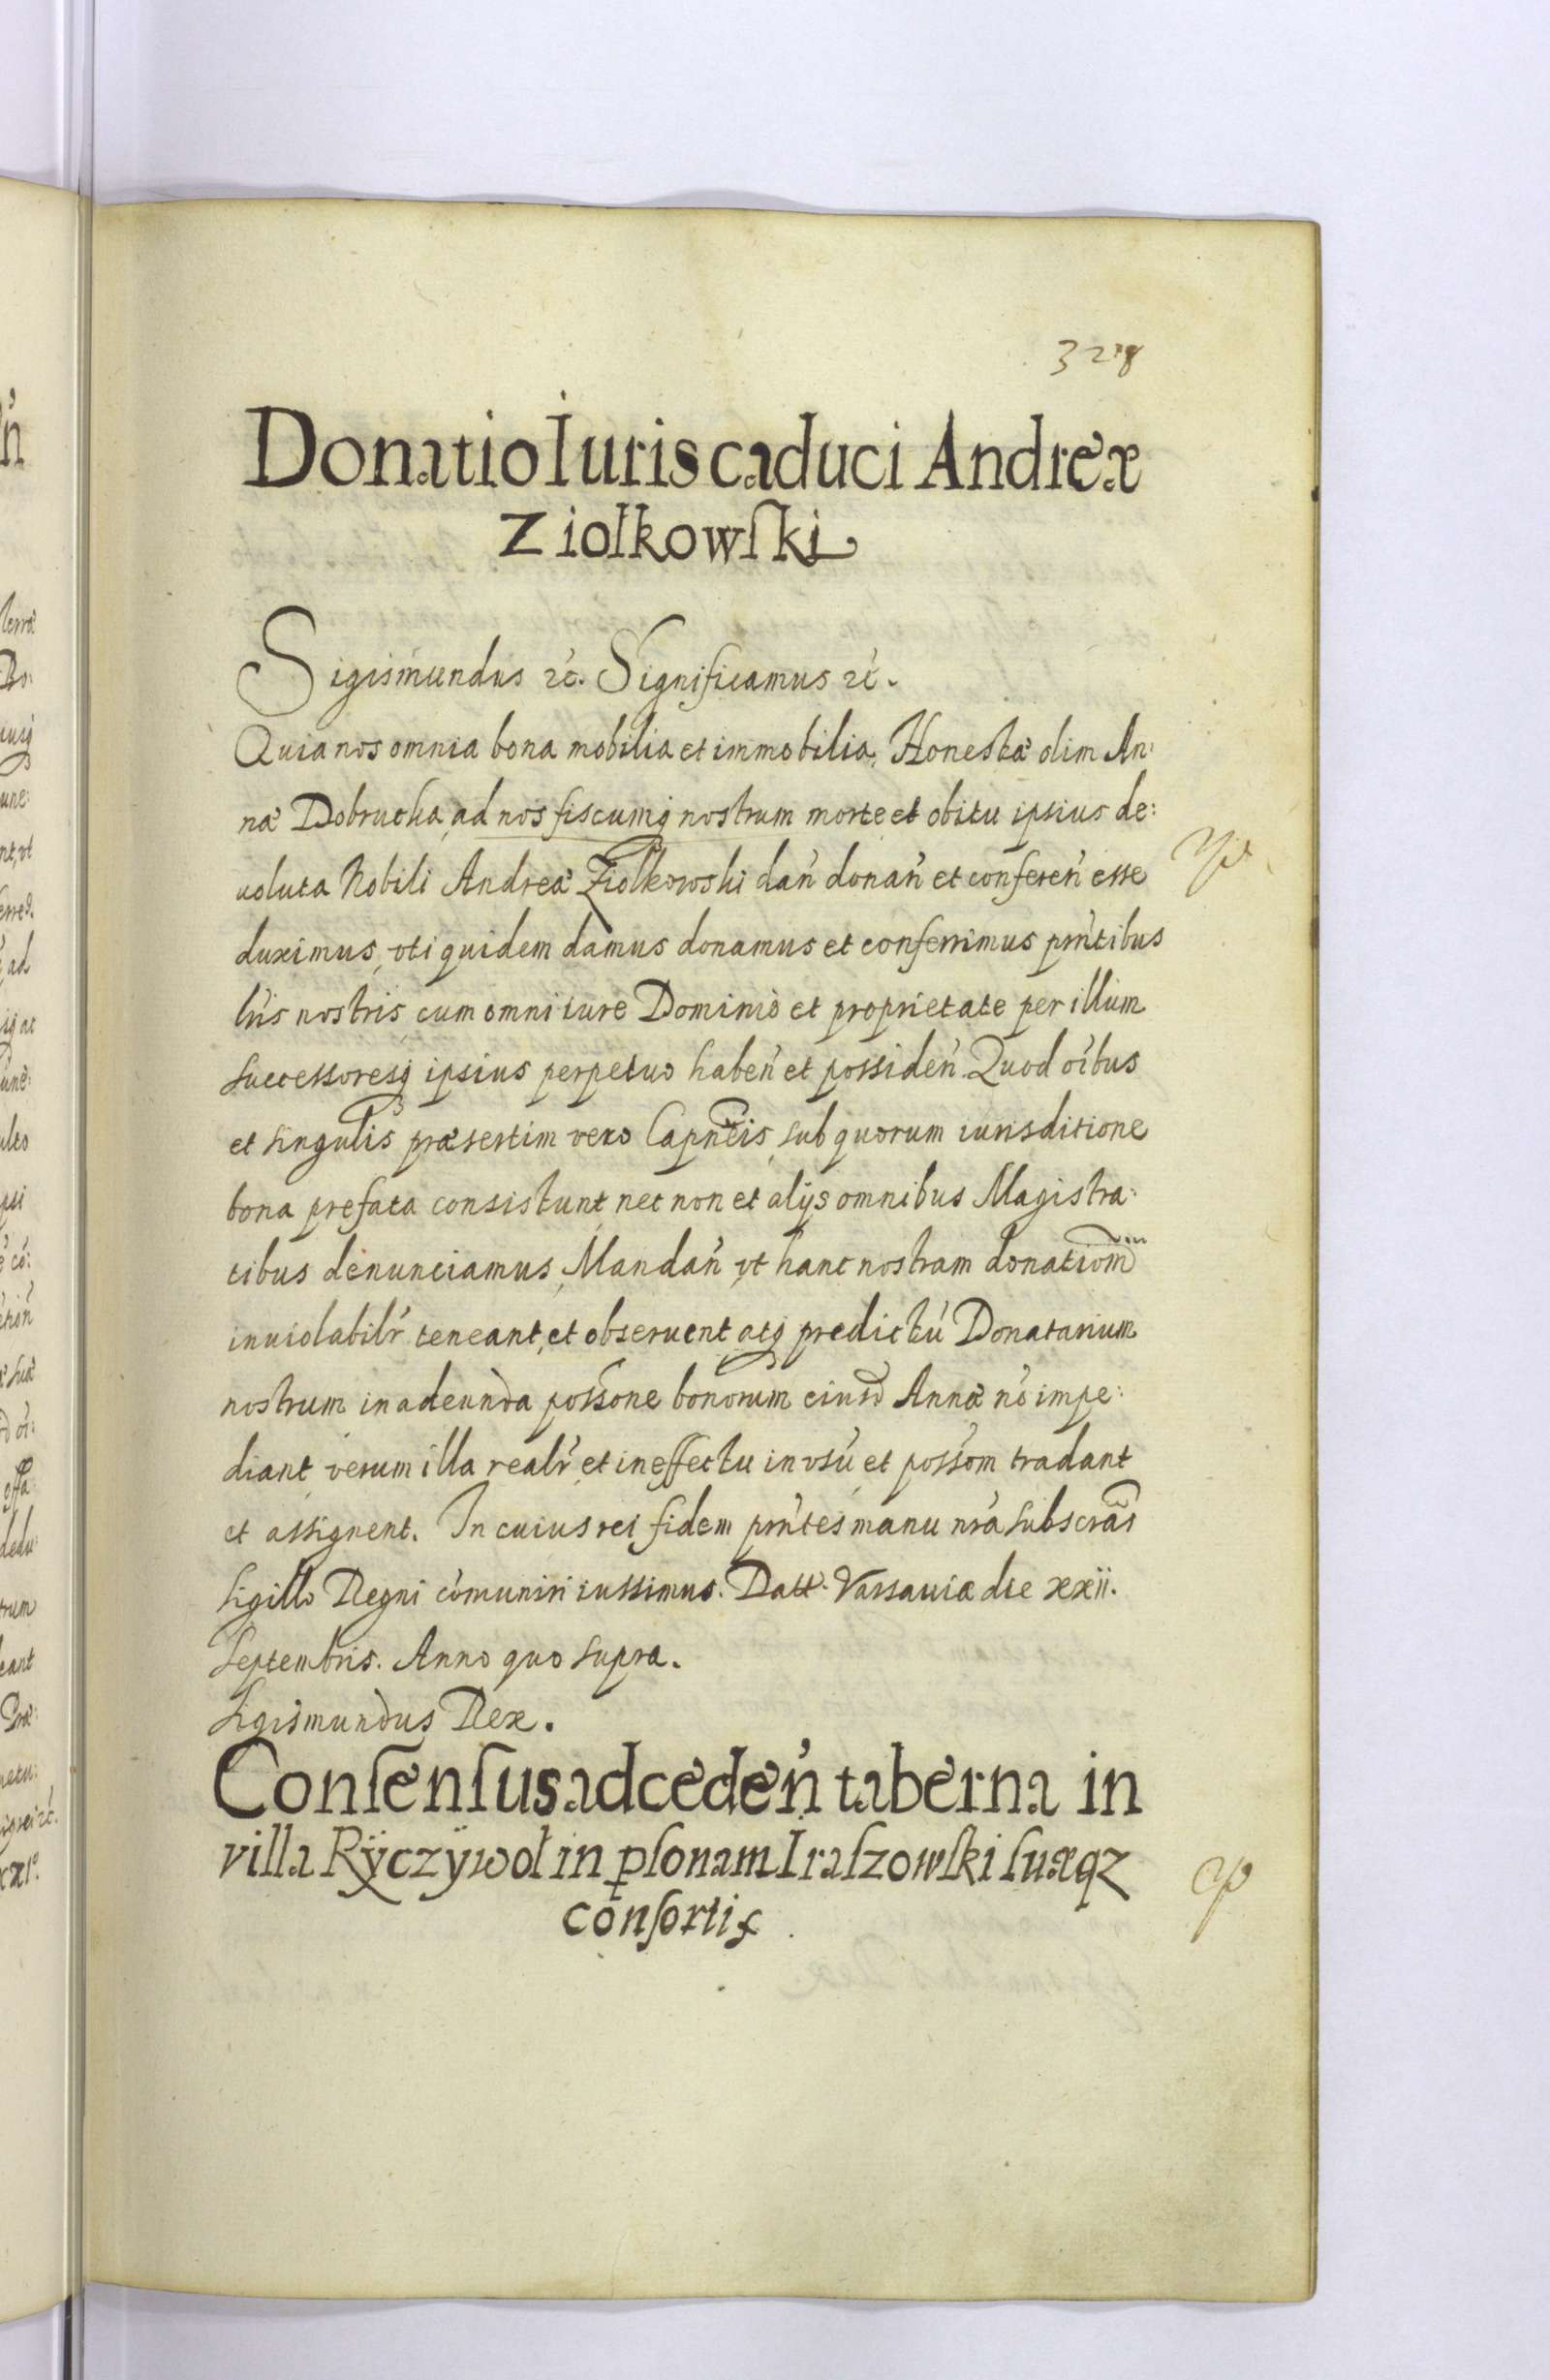 328
Donatio Iuris caduci Andreæ
Ziołkowſki
Sigismundus ꝛc̃. Significamus ꝛc̃.
Quia nos omnia bona mobilia et immobilia, Honestæ olim An:
næ Dobrucka, ad nos fiscumq nostrum morte et obitu ipsius de:
uoluta Nobili Andreæ Ziolkowski dan̄ donan̄ et conferen̄ esse
duximus, vti quidem damus donamus et conferrimus pn̄tibus
lr̄is nostris cum omni iure Dominio et proprietate per illum
successoresq ipsius perpetuo haben̄ et possiden̄. Quod oībus
et singulis præsertim vero Capn̄eis, sub quorum iurisditione
bona prefata consistunt nec non et alijs omnibus Magistra:
tibus denunciamus, Mandan̄ vt hanc nostram donatiom̄
inuiolabilr̄ teneant, et obseruent atq predictū Donatarium
nostrum in adeunda poss̄one bonorum eiusd Annæ nō impe:
diant, verum illa realr̄ et in effectu in vsū et poss̄om tradant
et assignent. In cuius rei fidem pn̄tes manu nr̄a subscr̄as
sigillo Regni cōmuniri iussimus. Datt. Varsauiæ die xxii.
Septembris. Anno quo supra.
Sigismundus Rex.
Conſenſus ad ceden̄ taberna in
villa Rÿczÿwoł in ꝑſonam Iraſzowſki ſuæqz
conſortis